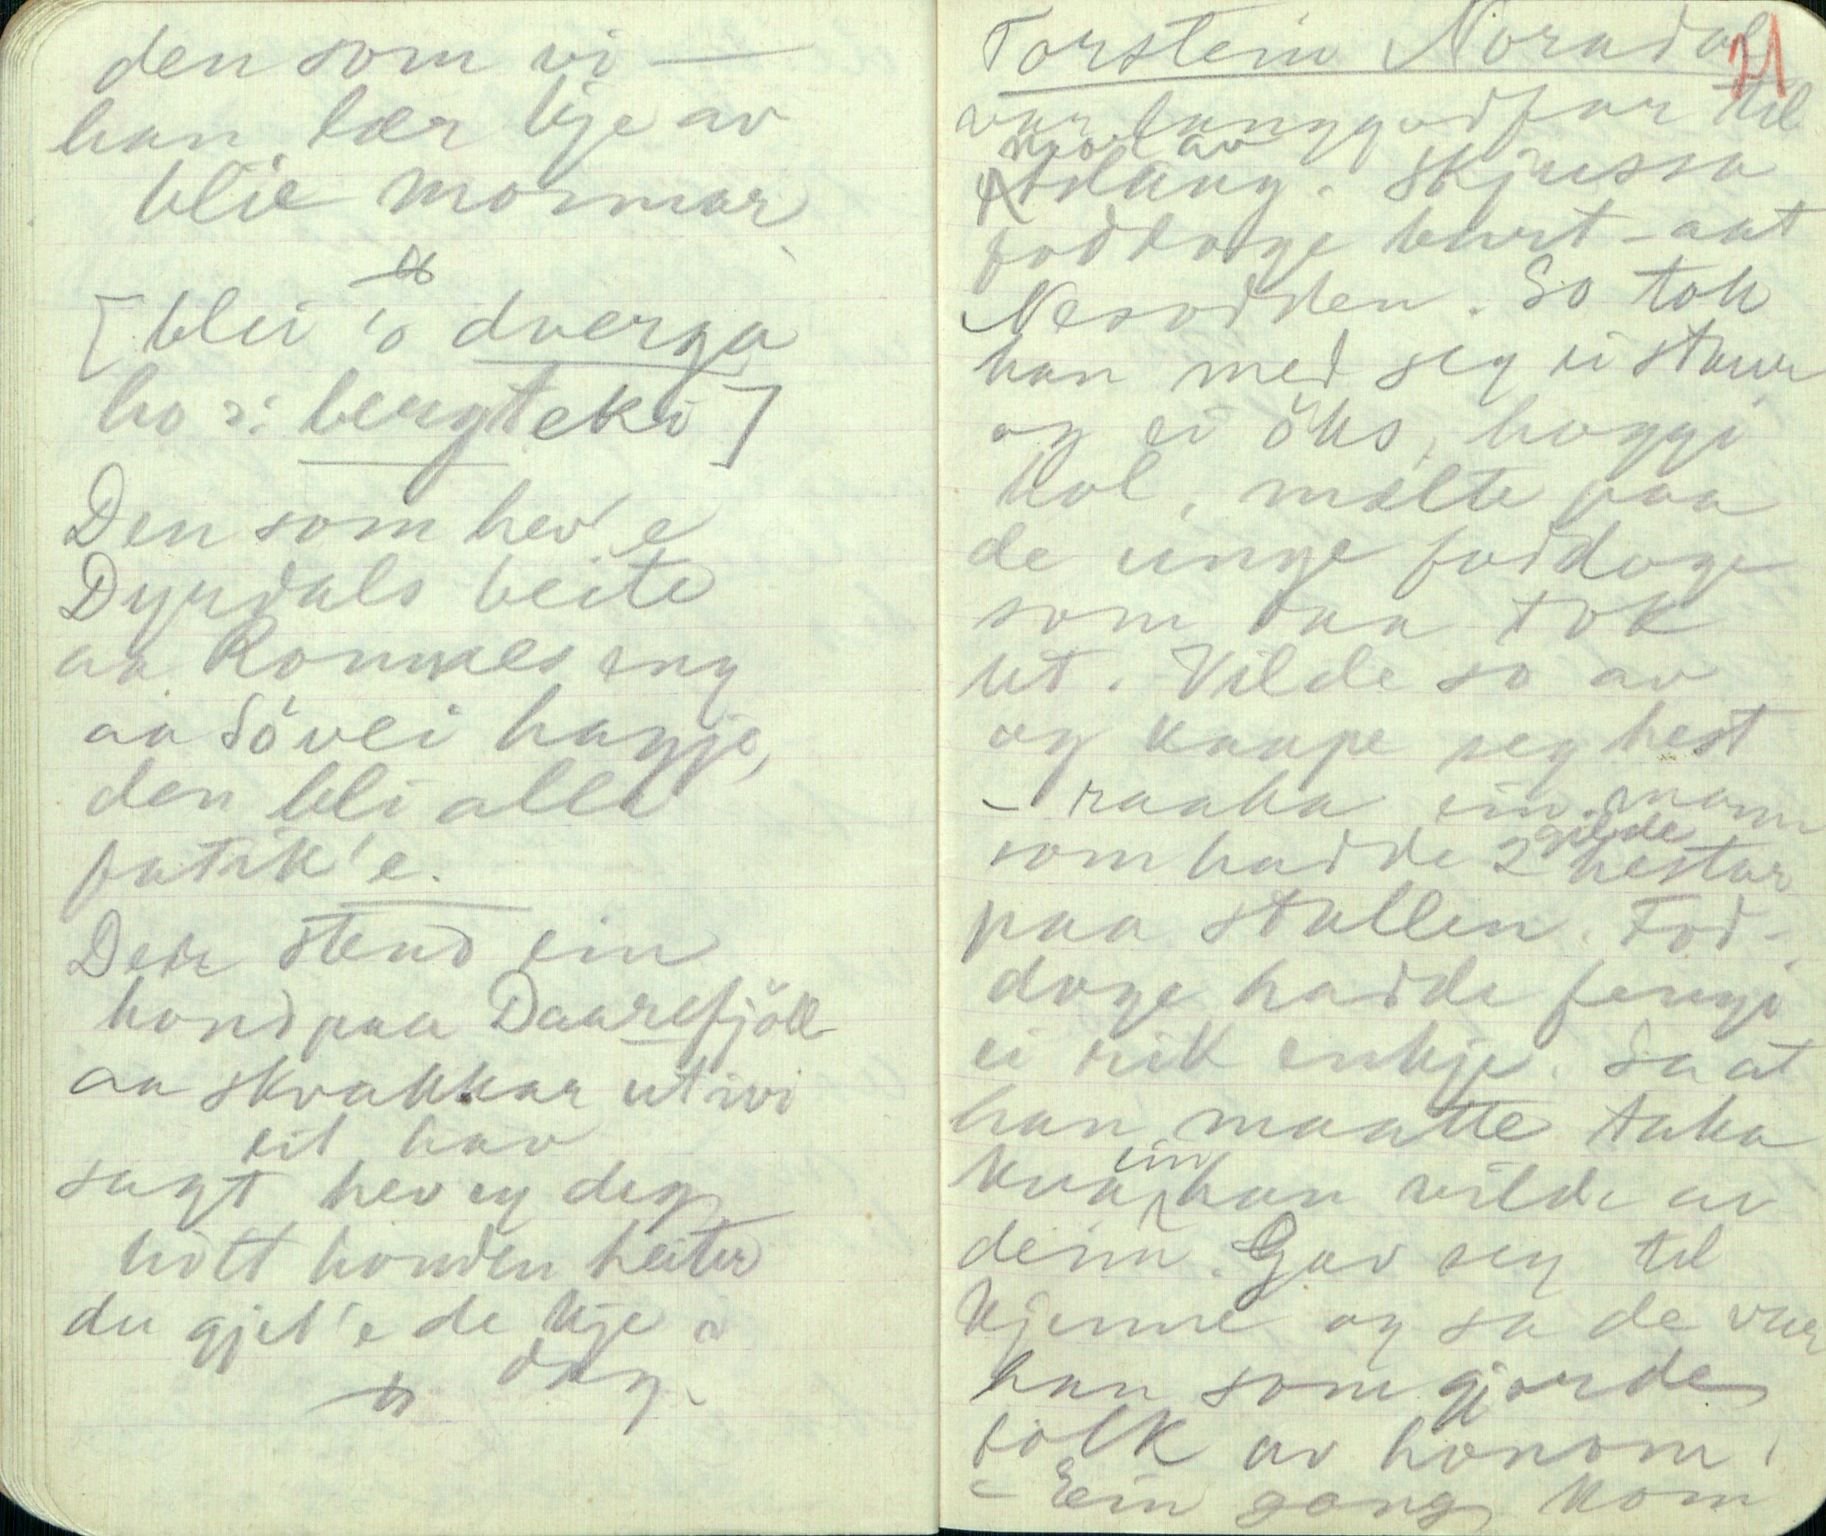 den som vi —
han lær kje av
blie mosmar
[blei 'o dverga
ho ɔ: bergteki]
Den som hev' e
Dyrdals beite
aa Rommes eng
aa Sövei hagje,
den bli alle
fatik'e.
Der stend ein
hond paa Daarefjöll
aa skvakkar utivi
eit hav
sagt hev eg deg
hött honden heiter
du gjet'e de kje i
dag.
Torstein Noradal
21
var langgodfar til
Aslaug. Skjussa
foddoge burt-aat
Nesodden. So tok
han med seg ei staur
og ei öks, hoggi
hol, mælte paa
de unge foddoge
som daa tok
ut. Vilde so av
og kaupe seg hest
– raaka ein mann
som hadde 2 gilde hestar
paa stallen. Fod-
doge hadde fengi
ei rik enkje. Sa at
han maatte taka
kva ein han vilde av
deim. Gav seg til
kjenne og sa de var
han som gjorde
folk av honom.
– Ein gong kom